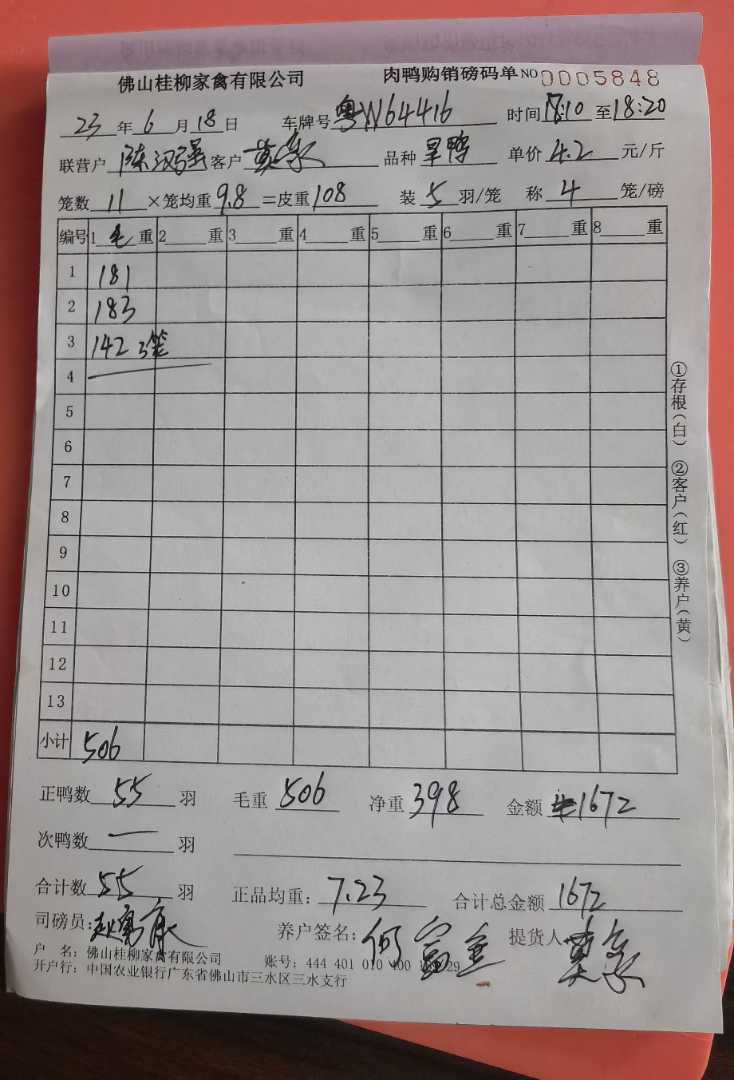 佛山桂柳家禽有限公司 肉鸭购销磅码单 NO 0005848
23 年 6 月 18 日 车牌号 粤W64416 时间 18:10 至 18:20
联营户 陈汉强 客户 品种 旱鸭 单价 4.2 元/斤
笼数 11 ×笼均重 9.8 =皮重 108 装 5 羽/笼 称 4 笼/磅
编号 1 毛 重 2 重 3 重 4 重 5 重 6 重 7 重 8 重
1 181
2 183
3 142 3笼
4
5
6
7
8
9
10
11
12
13
小计 506
①存根(白) ②客户(红) ③养户(黄)
正鸭数 55 羽 毛重 506 净重 398 金额 1672
次鸭数 一 羽
合计数 55 羽 正品均重: 7.23 合计总金额 1672
司磅员: 养户签名: 何富 提货人
户 名: 佛山桂柳家禽有限公司 账号: 444 401 010 400 29
开户行: 中国农业银行广东省佛山市三水区三水支行